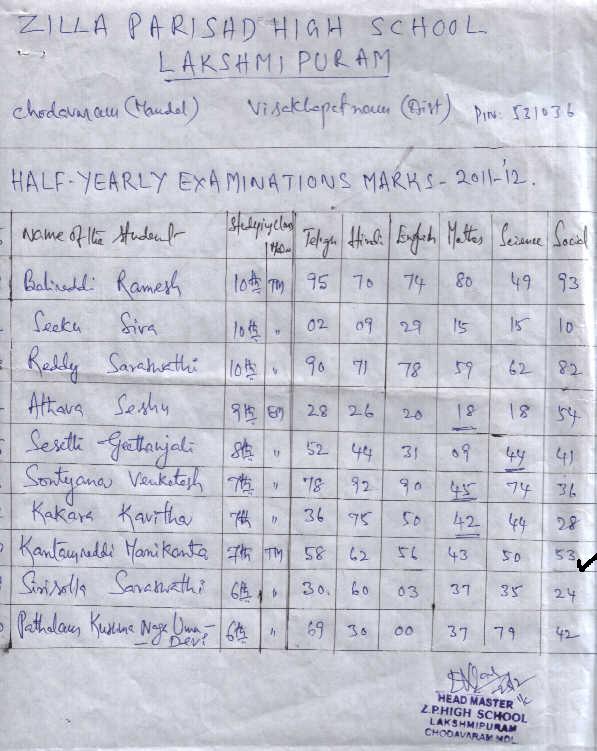 ZILLA PARISAD HIGH SCHOOL
LAKSHMIPURAM
Chodavaram (Mandal) Visakhapatnam (Dist) PIN: 531036
HALF-YEARLY EXAMINATIONS MARKS - 2011-'12.
Name of the Student Studying class Telugu Hindi English Maths Science Social
Balireddi Ramesh 10th TM 95 70 74 80 49 93
Seeku Siva 10th " 02 09 29 15 15 10
Reddy Saraswathi 10th " 90 71 78 59 62 82
Athava Seshu 9th EM 28 26 20 18 18 54
Sesetti Geethanjali 8th " 52 44 31 09 44 41
Sontyana Venkatesh 7th " 78 92 90 45 74 36
Kakara Kavitha 7th " 36 75 50 42 44 28
Kantamreddi Manikanta 7th TM 58 62 56 43 50 53
Sirisolla Saraswathi 6th " 30 60 03 37 35 24
Pathalam Kusuma Naga Uma- 6th " 69 30 00 37 79 42
Devi
HEAD MASTER
Z.P.HIGH SCHOOL
LAKSHMIPURAM
CHODAVARAM MDL